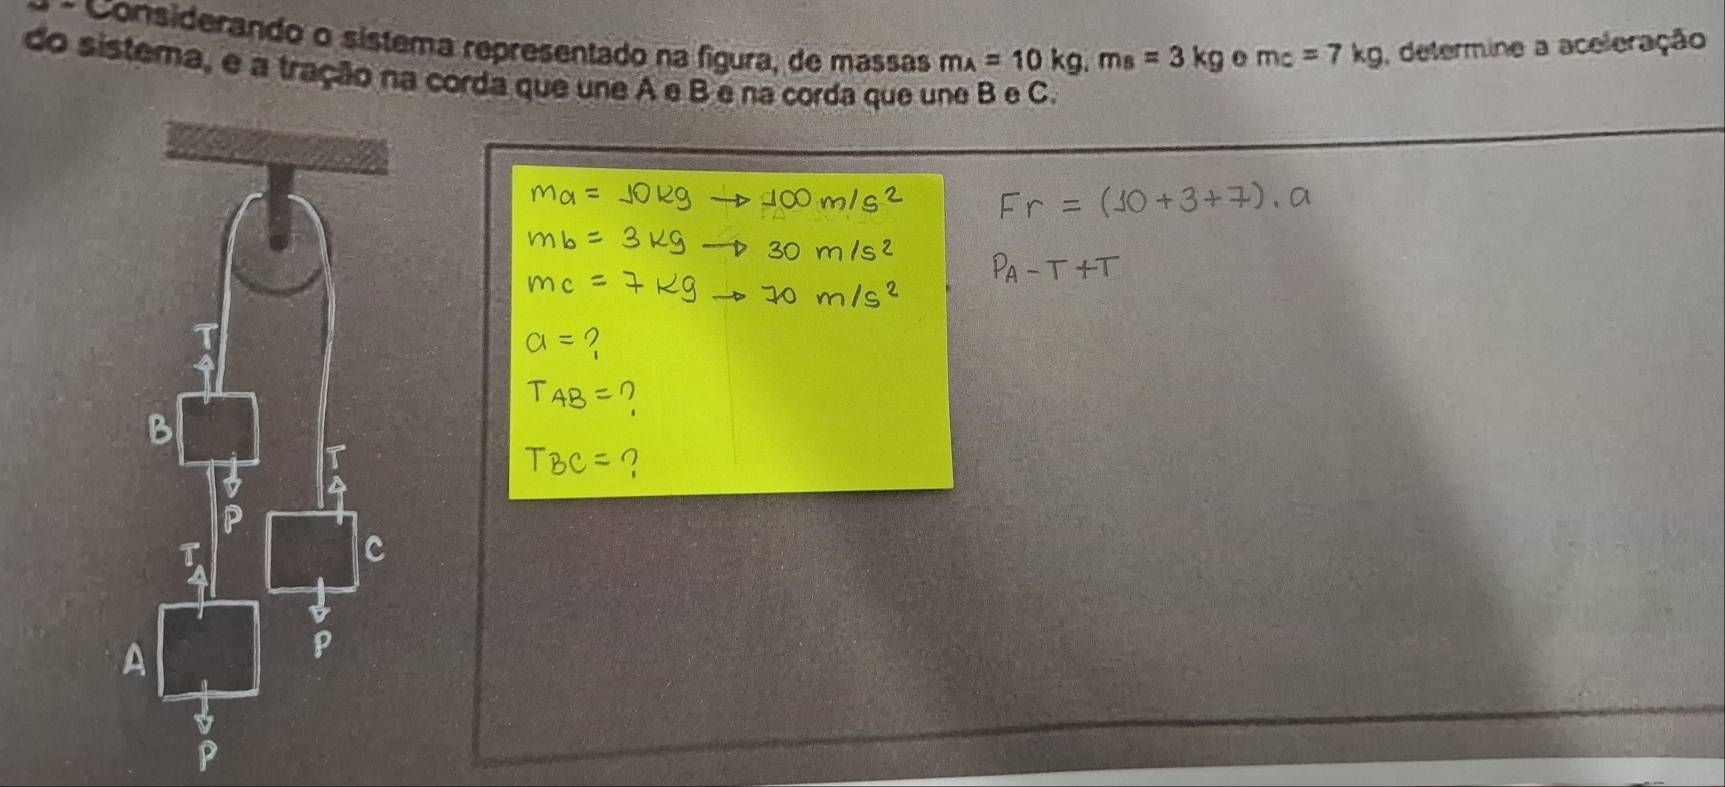 3 - Considerando o sistema representado na figura, de massas mA = 10 kg, mB = 3 kg e mC = 7 kg, determine a aceleração
do sistema, e a tração na corda que une A e B e na corda que une B e C.
ma = 10kg → 100 m/s²
mb = 3 kg → 30 m/s²
mc = 7 kg → 70 m/s²
a = ?
TAB = ?
TBC = ?
Fr = (10+3+7).a
PA - T + T
T
B
P
T
C
T
P
A
P